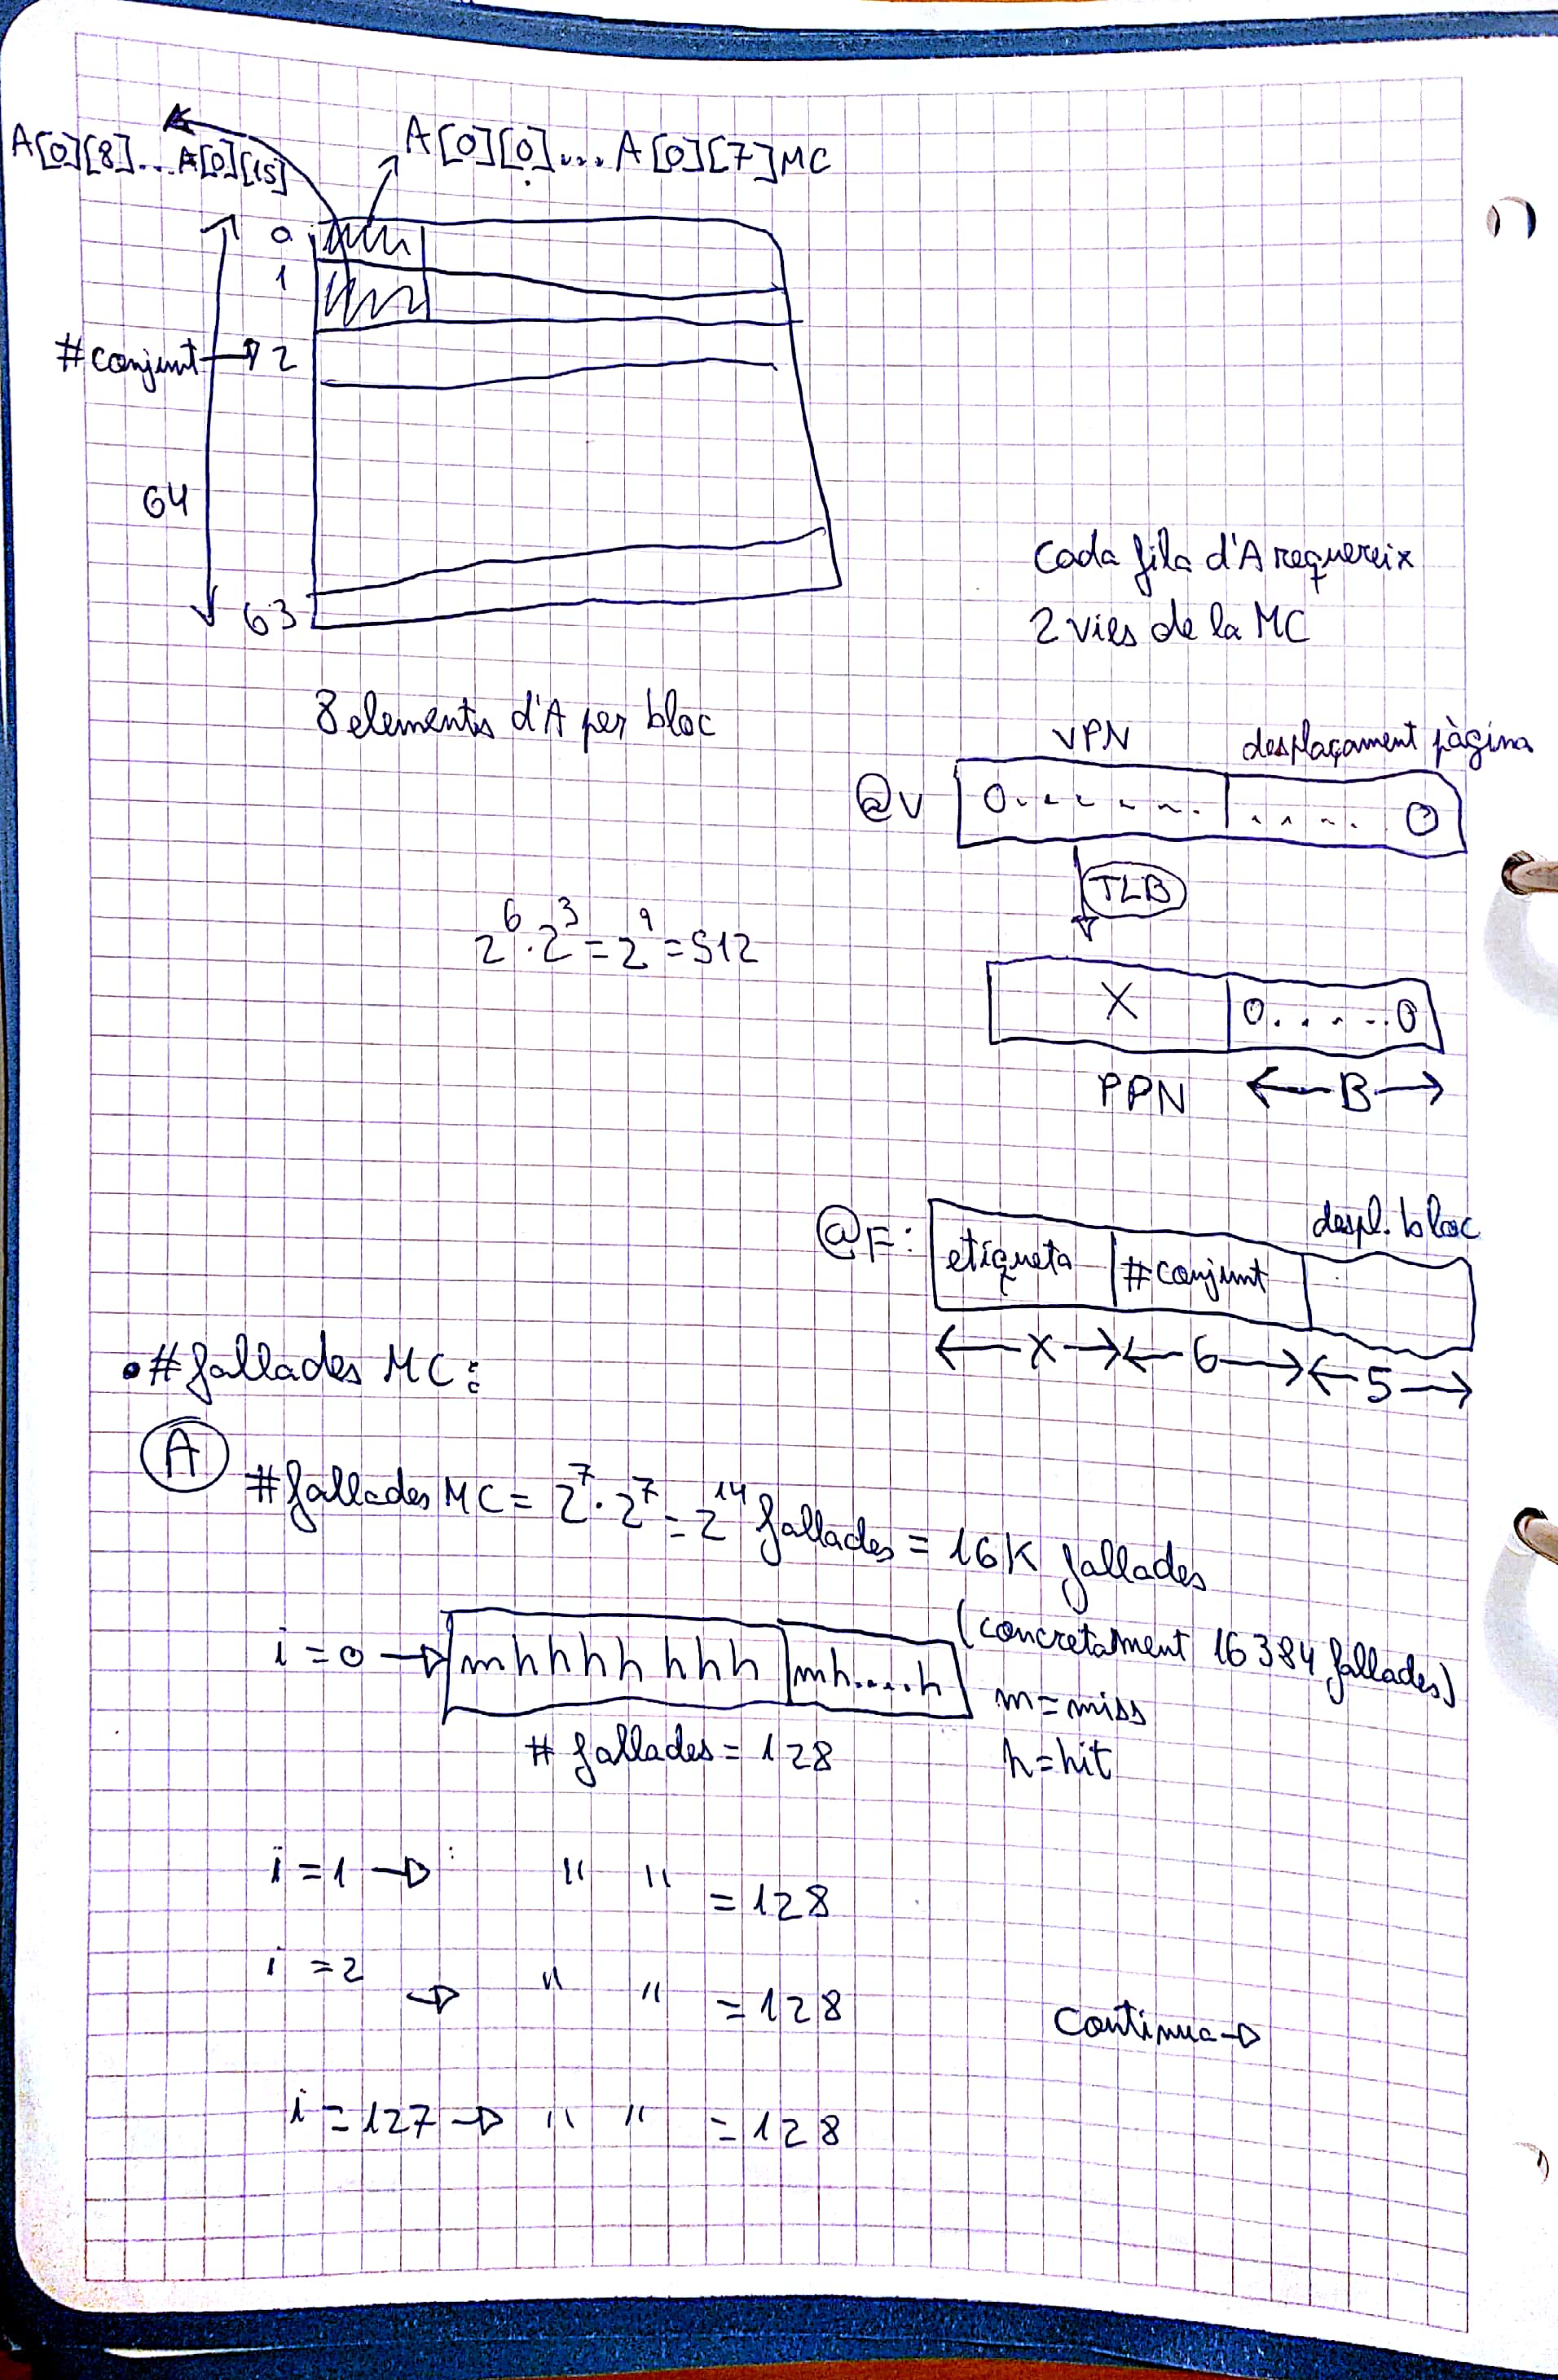 A[0][8]...A[0][15]
A[0][0]...A[0][7] MC
0
1
#conjunt → 2
64
63
Cada fila d'A requereix
2 vies de la MC
8 elements d'A per bloc
VPN desplaçament pàgina
@V 0....... .....0
TLB
2^6 · 2^3 = 2^9 = 512
X 0.....0
PPN ← B →
@F: etiqueta #conjunt despl. bloc
← X → ← 6 → ← 5 →
• # fallades MC:
A
# fallades MC = 2^7 · 2^7 = 2^14 fallades = 16K fallades
(concretament 16384 fallades)
i = 0 → m h h h h h h h mh....h
m = miss
# fallades = 128
h = hit
i = 1 → " " = 128
i = 2 → " " = 128
Continua →
i = 127 → " " = 128